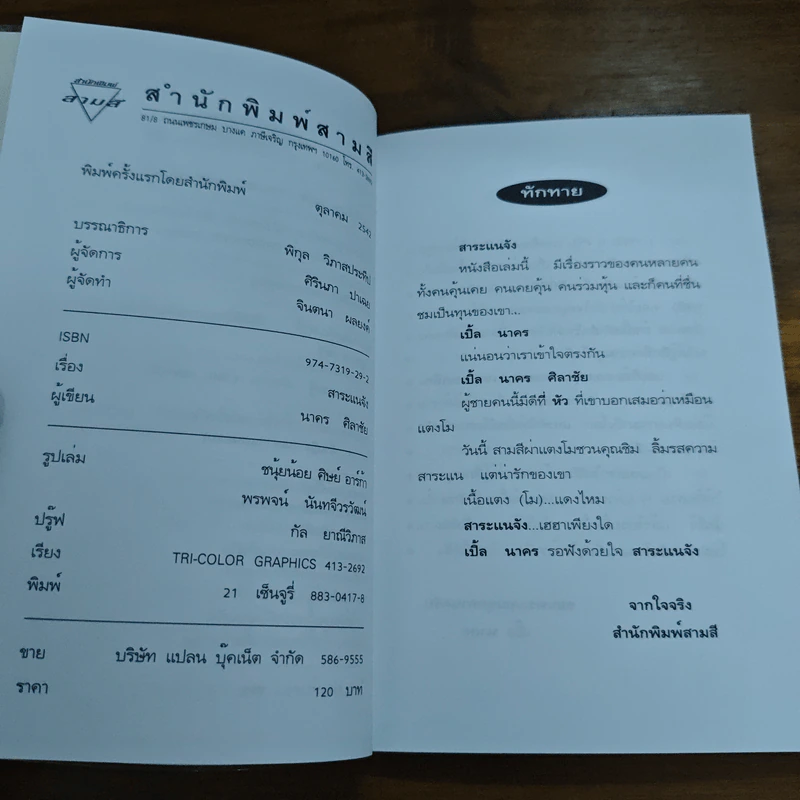 สำนักพิมพ์
สามสี
สำนักพิมพ์สามสี
81/8 ถนนเพชรเกษม บางแค ภาษีเจริญ กรุงเทพฯ 10160 โทร.
พิมพ์ครั้งแรกโดยสำนักพิมพ์
ตุลาคม 2542
บรรณาธิการ พิกุล วิภาสประทีป
ผู้จัดการ ศิรินภา ปาเฉย
ผู้จัดทำ จินตนา ผลยงค์
ISBN 974-7319-29-2
เรื่อง สาระแนจัง
ผู้เขียน นาคร ศิลาชัย
รูปเล่ม ชนุ้ยน้อย ศิษย์ อาร์ก้า
พรพจน์ นันทจีวรวัฒน์
ปรู๊ฟ กัล ยาณีวิภาส
เรียง TRI-COLOR GRAPHICS 413-2692
พิมพ์ 21 เซ็นจูรี่ 883-0417-8
ขาย บริษัท แปลน บุ๊คเน็ต จำกัด 586-9555
ราคา 120 บาท
ทักทาย
สาระแนจัง
หนังสือเล่มนี้ มีเรื่องราวของคนหลายคน
ทั้งคนคุ้นเคย คนเคยคุ้น คนร่วมหุ้น และก็คนที่ชื่น
ชมเป็นทุนของเขา...
เปิ้ล นาคร
แน่นอนว่าเราเข้าใจตรงกัน
เปิ้ล นาคร ศิลาชัย
ผู้ชายคนนี้มีดีที่ หัว ที่เขาบอกเสมอว่าเหมือน
แตงโม
วันนี้ สามสีผ่าแตงโมชวนคุณชิม ลิ้มรสความ
สาระแน แต่น่ารักของเขา
เนื้อแตง (โม)...แดงไหม
สาระแนจัง...เฮฮาเพียงใด
เปิ้ล นาคร รอฟังด้วยใจ สาระแนจัง
จากใจจริง
สำนักพิมพ์สามสี